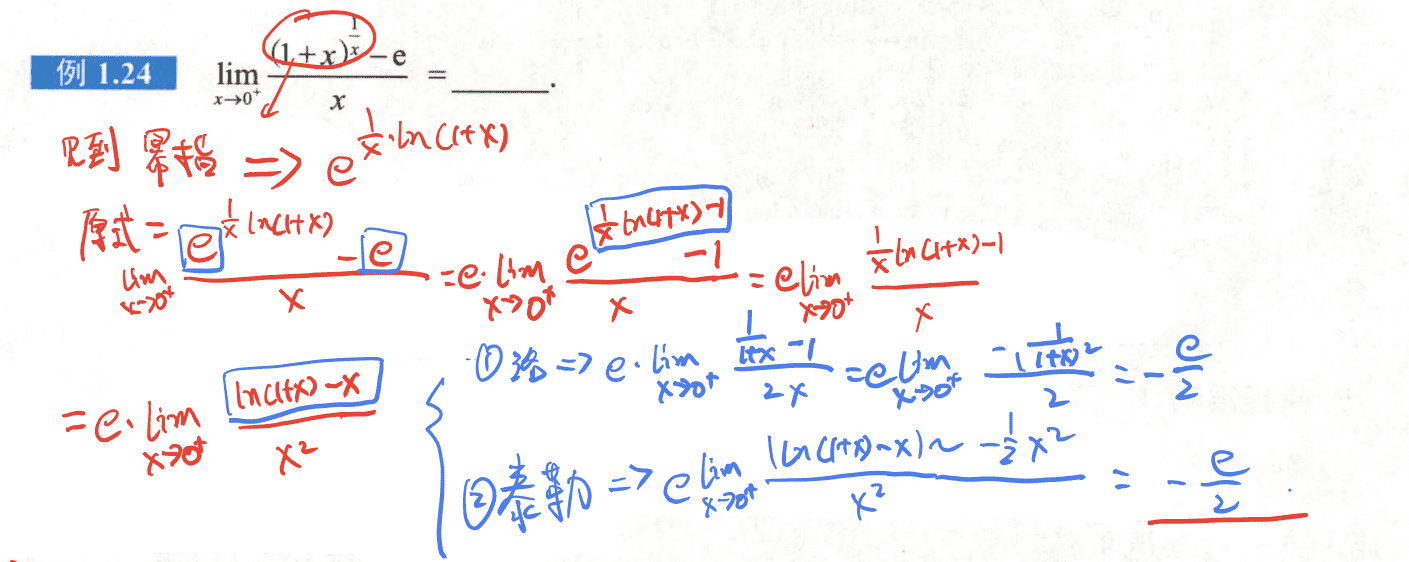 例 1.24 lim_{x→0⁺} ((1+x)^{1/x} − e)/x = ______.
见到 幂指 => e^{1/x·ln(1+x)}
原式 = lim_{x→0⁺} (e^{1/x ln(1+x)} − e)/x = e·lim_{x→0⁺} (e^{1/x ln(1+x)−1} − 1)/x = e lim_{x→0⁺} (1/x ln(1+x)−1)/x
= e·lim_{x→0⁺} (ln(1+x)−x)/x²
① 洛 => e·lim_{x→0⁺} (1/(1+x) − 1)/(2x) = e lim_{x→0⁺} (−1/(1+x)²)/2 = −e/2
② 泰勒 => e lim_{x→0⁺} ((ln(1+x)−x) ~ −1/2 x²)/x² = −e/2.